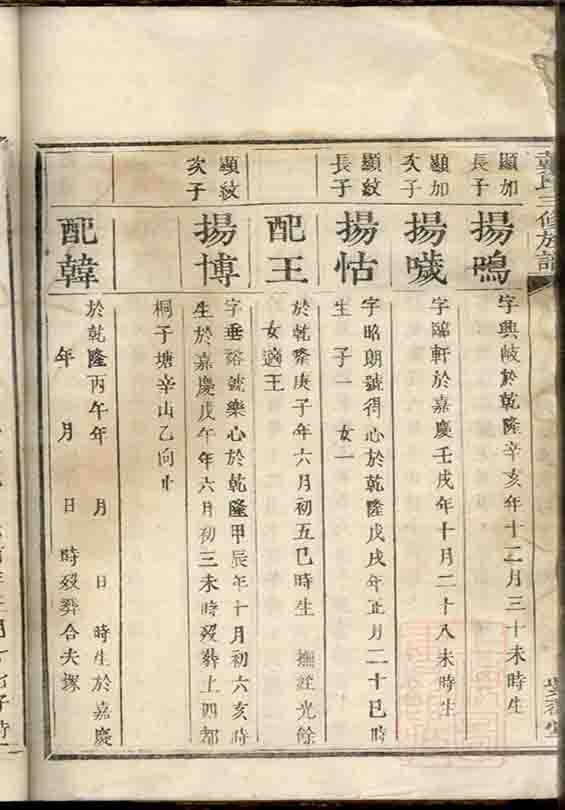 三修族譜
顯加
長子
揚鳴
字興岐於乾隆辛亥年十二月三十未時生
顯加
次子
揚噦
字臨軒於嘉慶壬戌年十月二十八未時生
顯紋
長子
揚怙
字昭朗號得心於乾隆戊戌年正月二十巳時
生 子一 女一
配王
於乾隆庚子年六月初五巳時生 撫姪光餘
女適王
顯紋
次子
揚博
字垂裕號樂心於乾隆甲辰年十月初六亥時
生於嘉慶戊午年六月初三未時歿葬上四都
桐子塘辛山乙向
配韓
於乾隆丙午年 月 日 時生於嘉慶
年 月 日 時歿葬合夫塚